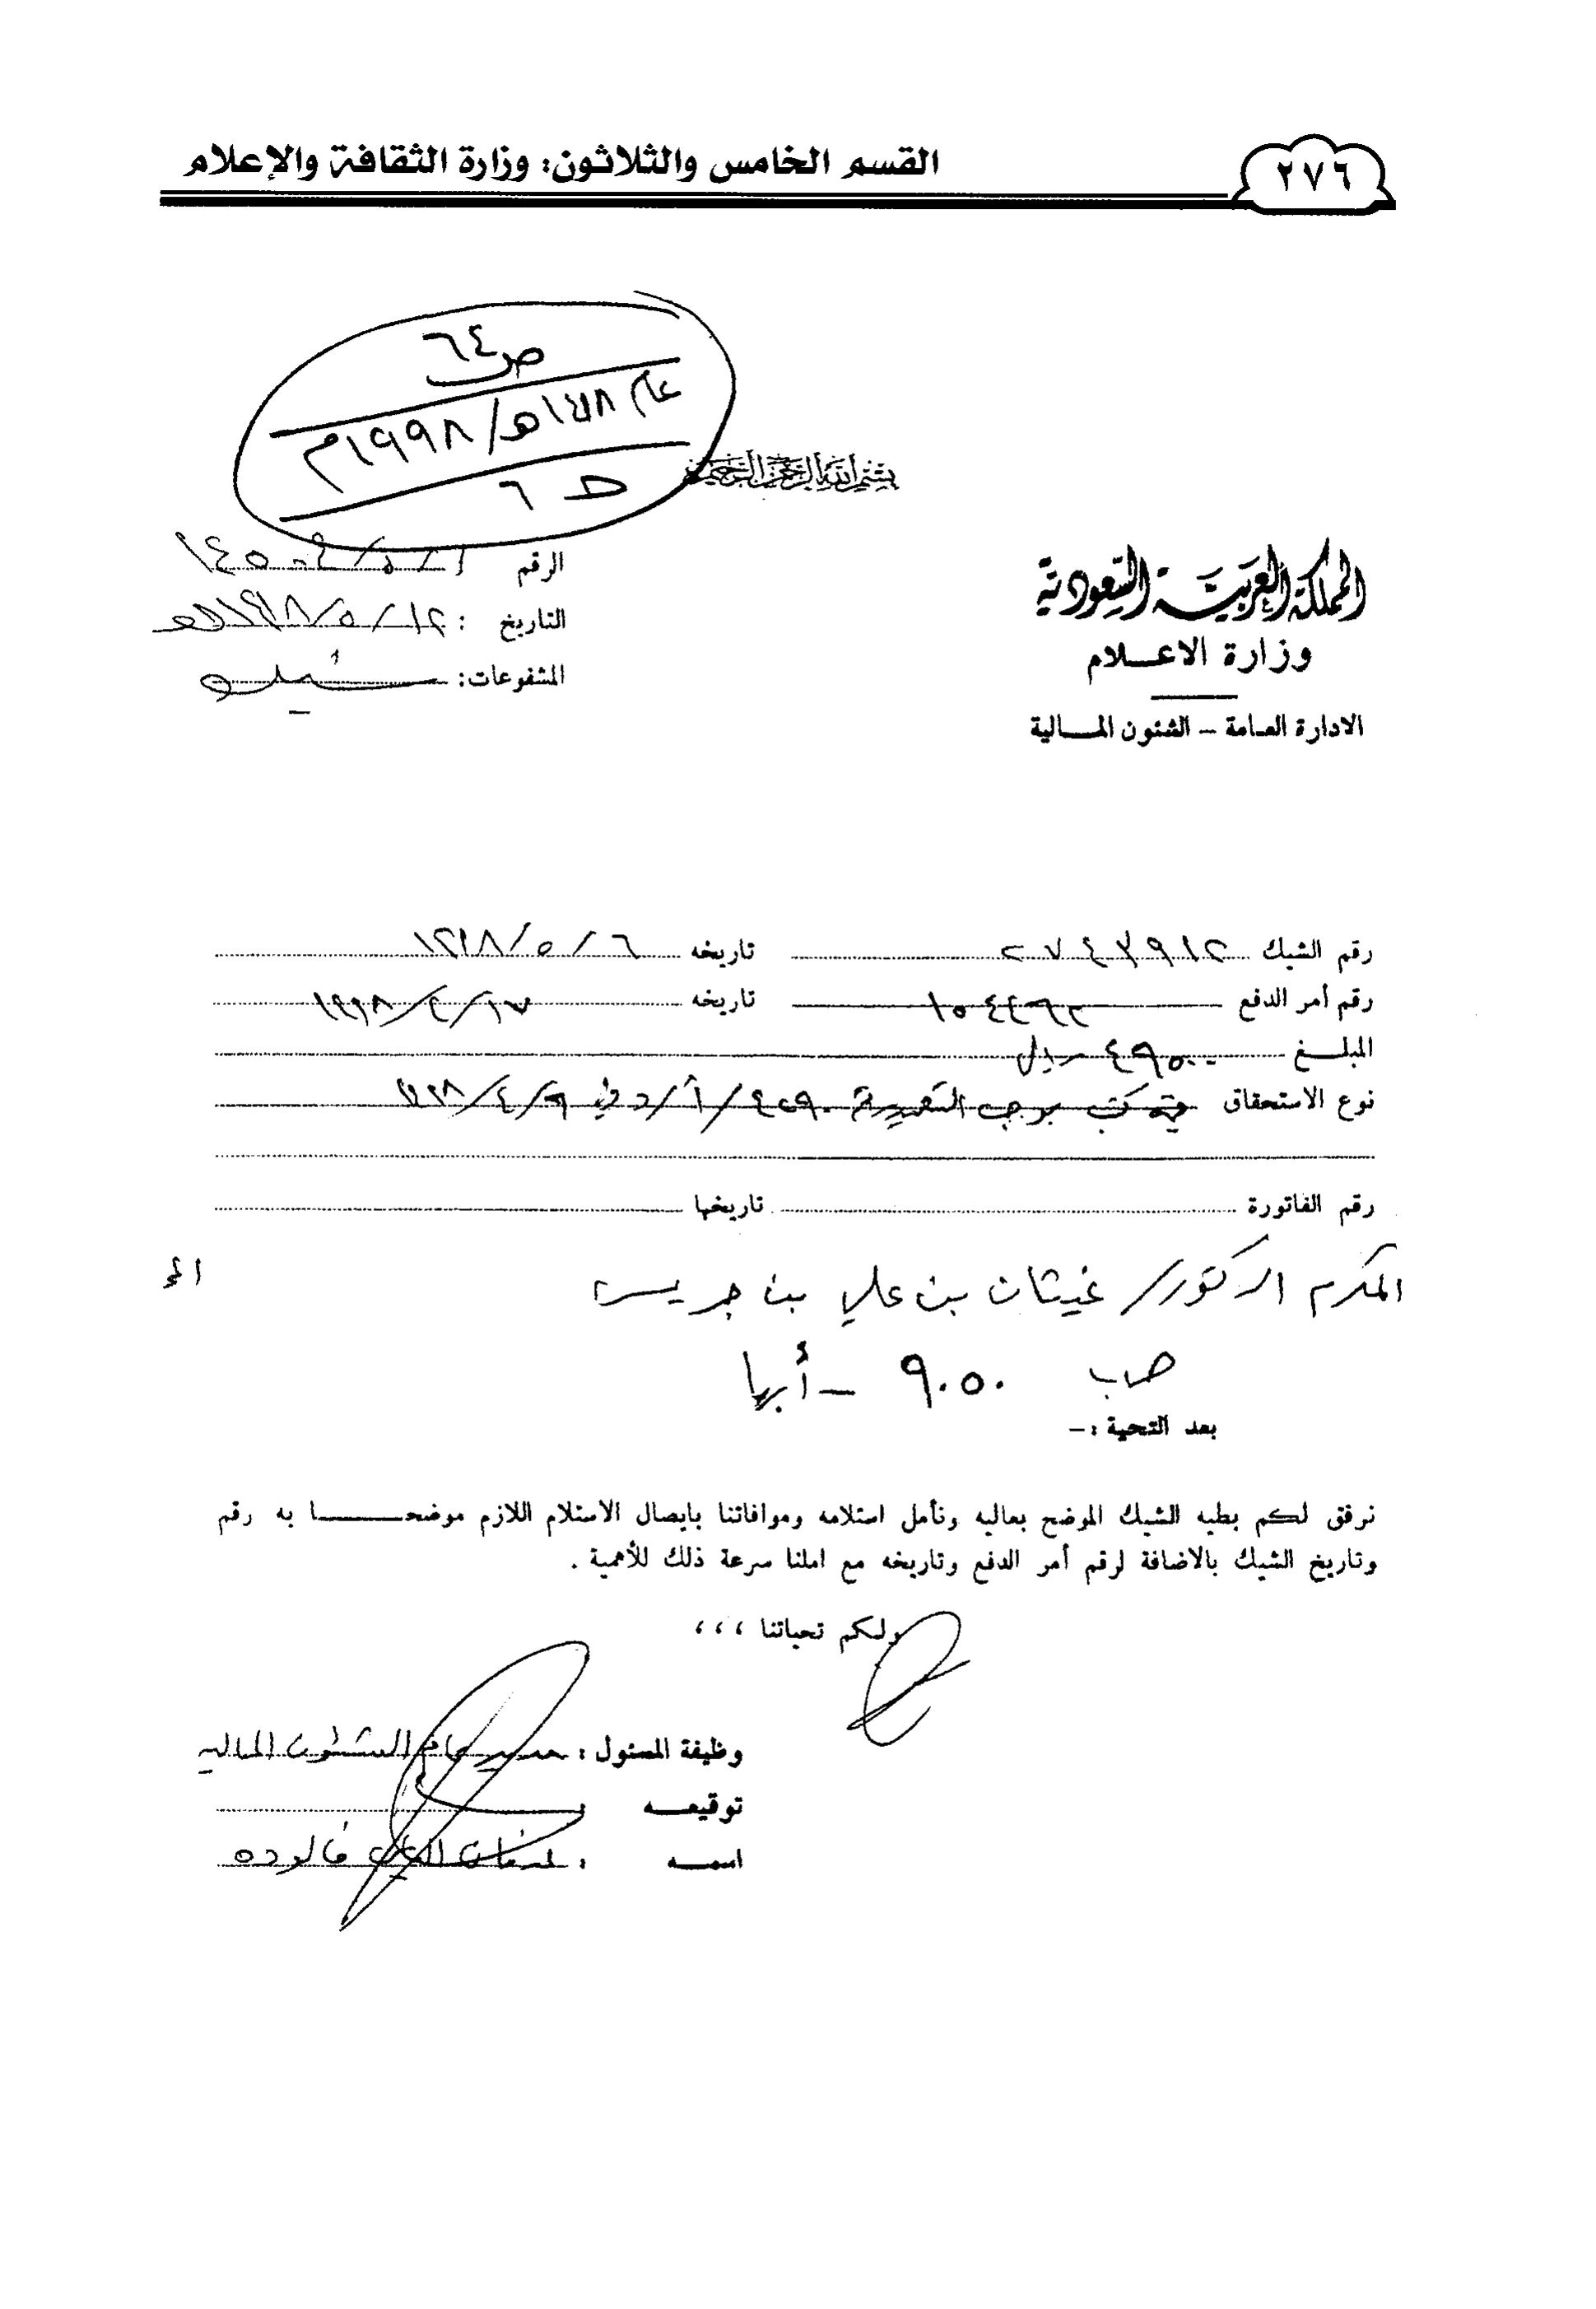 ٢٧٦
القسم الخامس والثلاثون: وزارة الثقافة والإعلام
ص ٦٤
عام ١٤١٨هـ/ ١٩٩٨م
ط ٦
بسم الله الرحمن الرحيم
المملكة العربية السعودية
وزارة الاعلام
الادارة العامة – الشئون المالية
الرقم
التاريخ : ١٢/ ٥/ ١٤١٨هـ
المشفوعات: شيك
رقم الشيك ٢٧٤٣٩١٢ تاريخه ٦/ ٥/ ١٤١٨
رقم أمر الدفع تاريخه ١٧/ ٤/ ١٤١٨
المبلغ ٤٩٥٠٠ ريال
نوع الاستحقاق قيمة كتب بموجب التعميد في
رقم الفاتورة تاريخها
المكرم الدكتور/ غيثان بن علي بن جريس
ص ب ٩٠٥٠ – أبها
بعد التحية :–
نرفق لكم بطيه الشيك الموضح بعاليه ونأمل استلامه وموافاتنا بايصال الاستلام اللازم موضحا به رقم
وتاريخ الشيك بالاضافة لرقم أمر الدفع وتاريخه مع املنا سرعة ذلك للأهمية .
ولكم تحياتنا ،،،
وظيفة المسئول : مدير عام الشئون المالية
توقيعه :
اسمه : فالوده